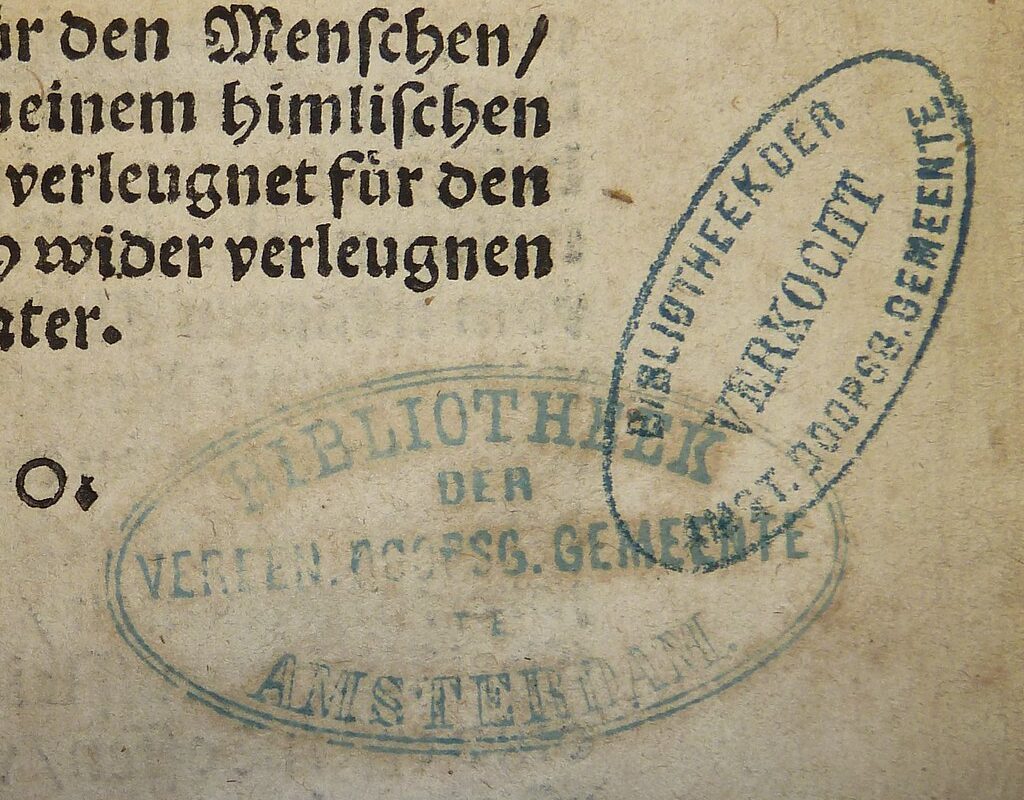 ür den Menschen/
meinem himlischen
verleugnet für den
wider verleugnen
ater.
O.
BIBLIOTHEEK
DER
VEREEN. DOOPSG. GEMEENTE
TE
AMSTERDAM.
BIBLIOTHEEK DER
VERKOCHT
AMST. DOOPSG. GEMEENTE